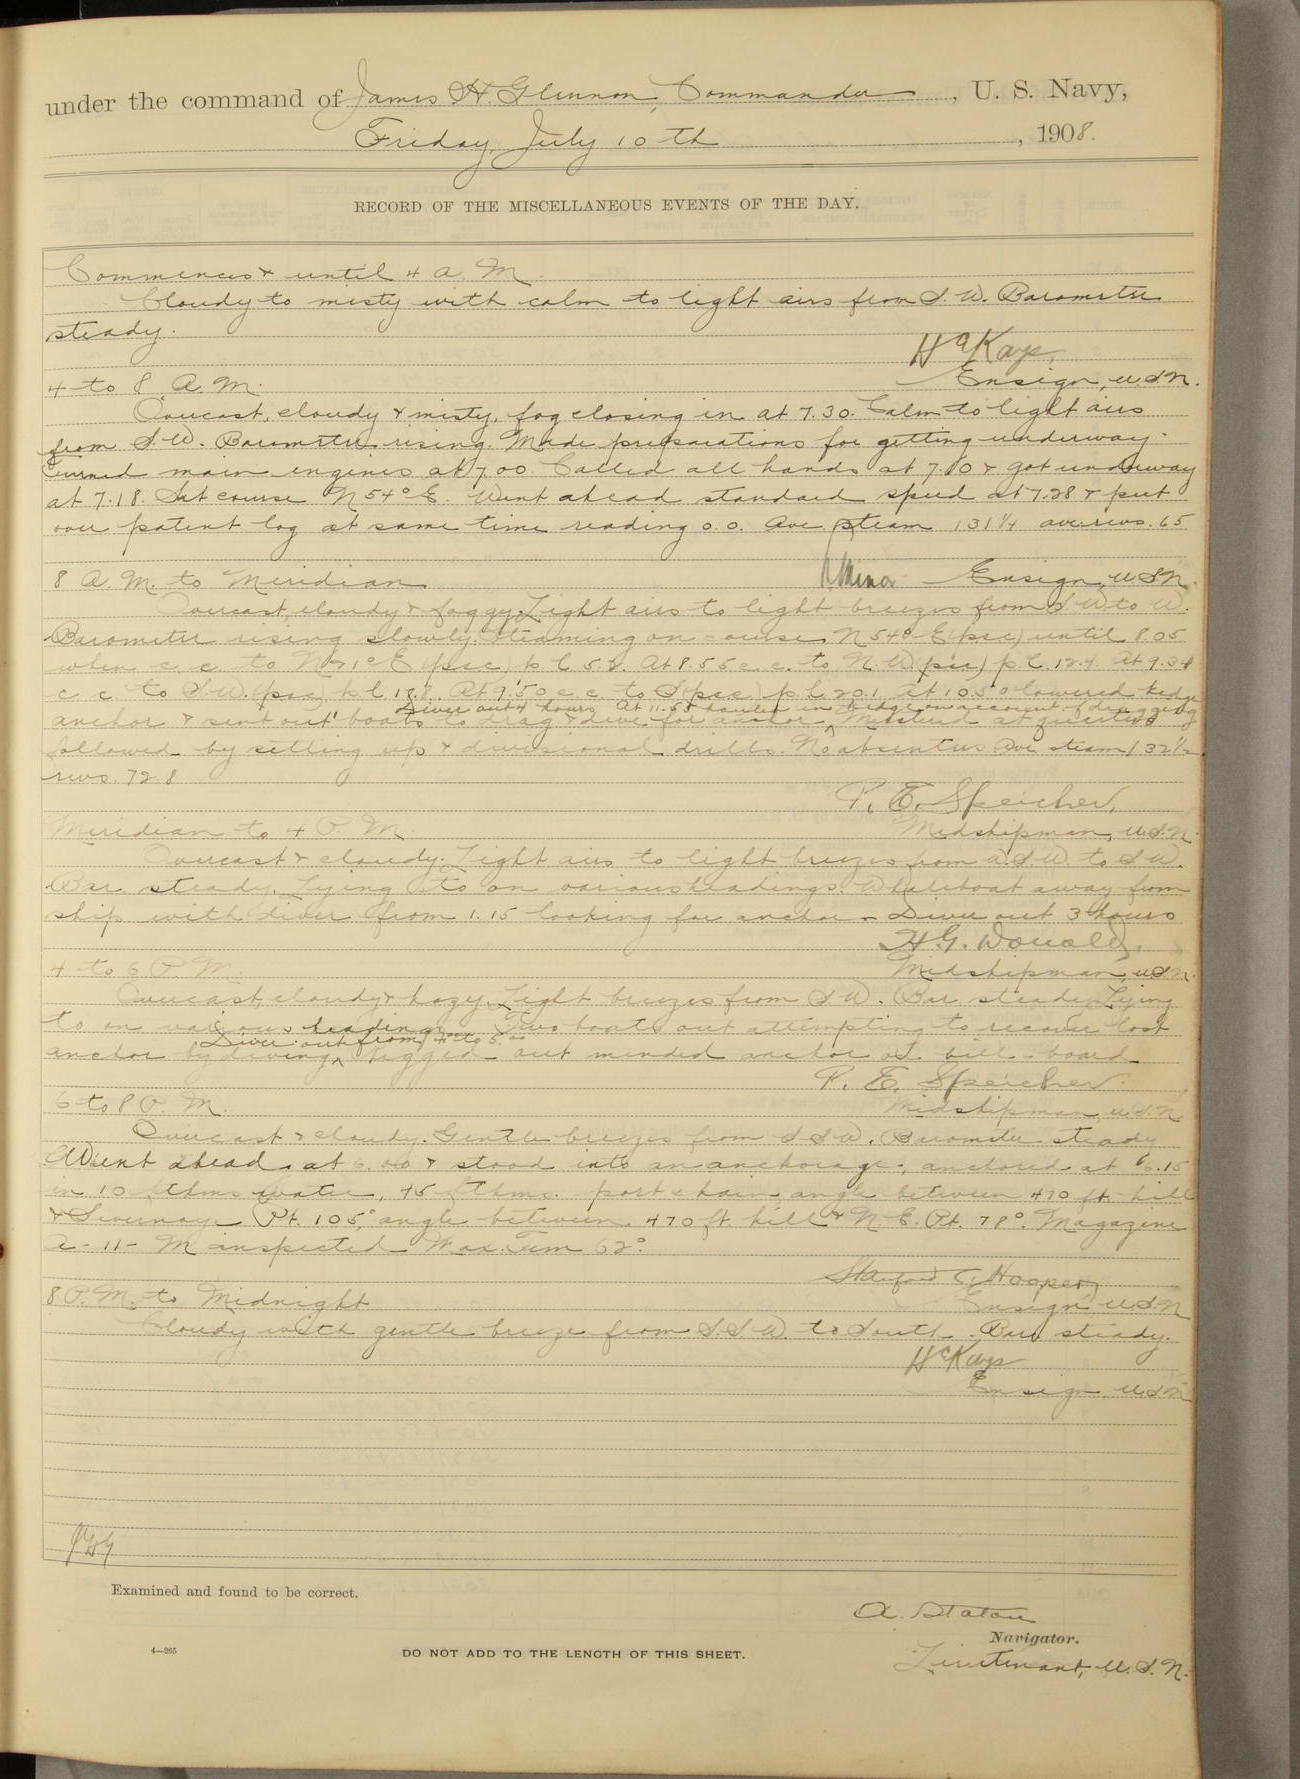 under the command of James H. Glennon, Commander, U. S. Navy,
Friday, July 10th, 1908.
RECORD OF THE MISCELLANEOUS EVENTS OF THE DAY.
Commences & until 4 A. M.
Cloudy to misty with calm to light airs from S. W. Barometer
steady.
Kays,
4 to 8 A. M.
Ensign, U.S.N.
Overcast, cloudy & misty, fog closing in at 7.30. Calm to light airs
from S. W. Barometer rising. Made preparations for getting underway.
turned main engines at 7.00. Called all hands at 7.10 & got underway
at 7.18. Set course N 54° E. Went ahead standard speed at 7.28 & put
over patent log at same time reading 0.0. Ave. steam 131 1/4 ave. revs. 65
8 A. M. to Meridian
Ensign, U.S.N.
Overcast, cloudy & foggy. Light airs to light breezes from S W to W.
Barometer rising slowly. Steaming on course N 54° E (psc) until 8.05
when c. c. to N 21° E (psc) p. l. 5.8. At 8.55 c. c. to N. W. (psc) p. l. 12.4. At 9.
c c. to S. W. (psc) p. l. At 9.50 c. c. to S (psc) p. l. 20.1. At 10.50 lowered kedge
Diver out 4 hours At 11.5 hauled in kedge on account of dragging
anchor & sent out boats to drag & dive for anchor. Mustered at quarters
followed by setting up & divisional drills. No absentees Ave steam 132 1/2
revs. 72.8
P. E. Speicher,
Meridian to 4 P. M.
Midshipman, U.S.N.
Overcast & cloudy. Light airs to light breezes from W. S. W. to S. W.
Bar. steady. Lying to on various headings. Whaleboat away from
ship with diver from 1.15 looking for anchor - Diver out 3 hours
H. G. Donald,
4 to 6 P. M.
Midshipman, U.S.N.
Overcast, cloudy & hazy. Light breezes from S. W. Bar. steady. Lying
to on various headings. Two boats out attempting to recover lost
Diver out from 4 to 5.00
anchor by diving ^ Rigged out mended anchor on bill-board
P. E. Speicher
6 to 8 P. M.
Midshipman, U.S.N.
Overcast & cloudy. Gentle breezes from S S W. Barometer steady
Went ahead at 6.00 & stood into an anchorage; anchored at 6.15
in 10 fthms water, 45 fthms. port chain, angle between 470 ft. hill
& Pt. 105°, angle between 470 ft hill & N. E. Pt. 78°. Magazine
A-11-M inspected Max. Tem 62°.
Stanford C. Hooper,
8 P. M. to Midnight
Ensign, U.S.N
Cloudy with gentle breeze from S. S. W. to South. Bar. steady.
Kays
Ensign, U.S.N.
Examined and found to be correct.
A. Staton
Navigator.
4—265
DO NOT ADD TO THE LENGTH OF THIS SHEET.
Lieutenant, U. S. N.